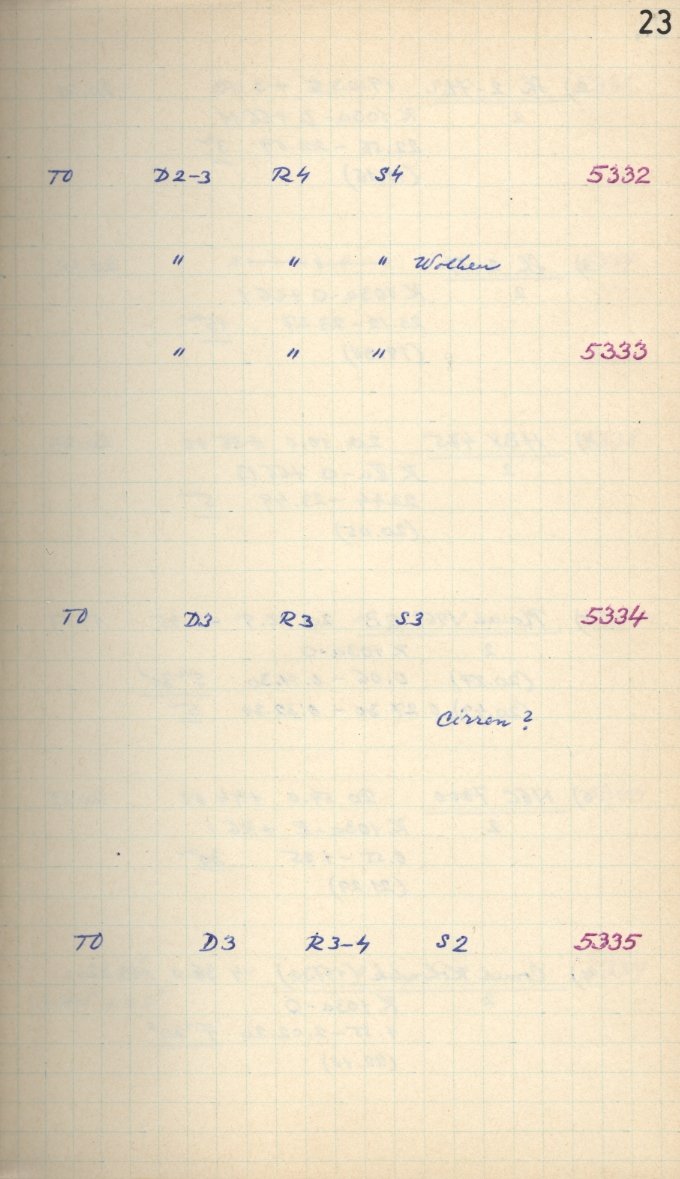 23
TO D2-3 R4 S4 5332
" " " Wolken
" " " 5333
TO D3 R3 S3 5334
Cirren?
TO D3 R3-4 S2 5335